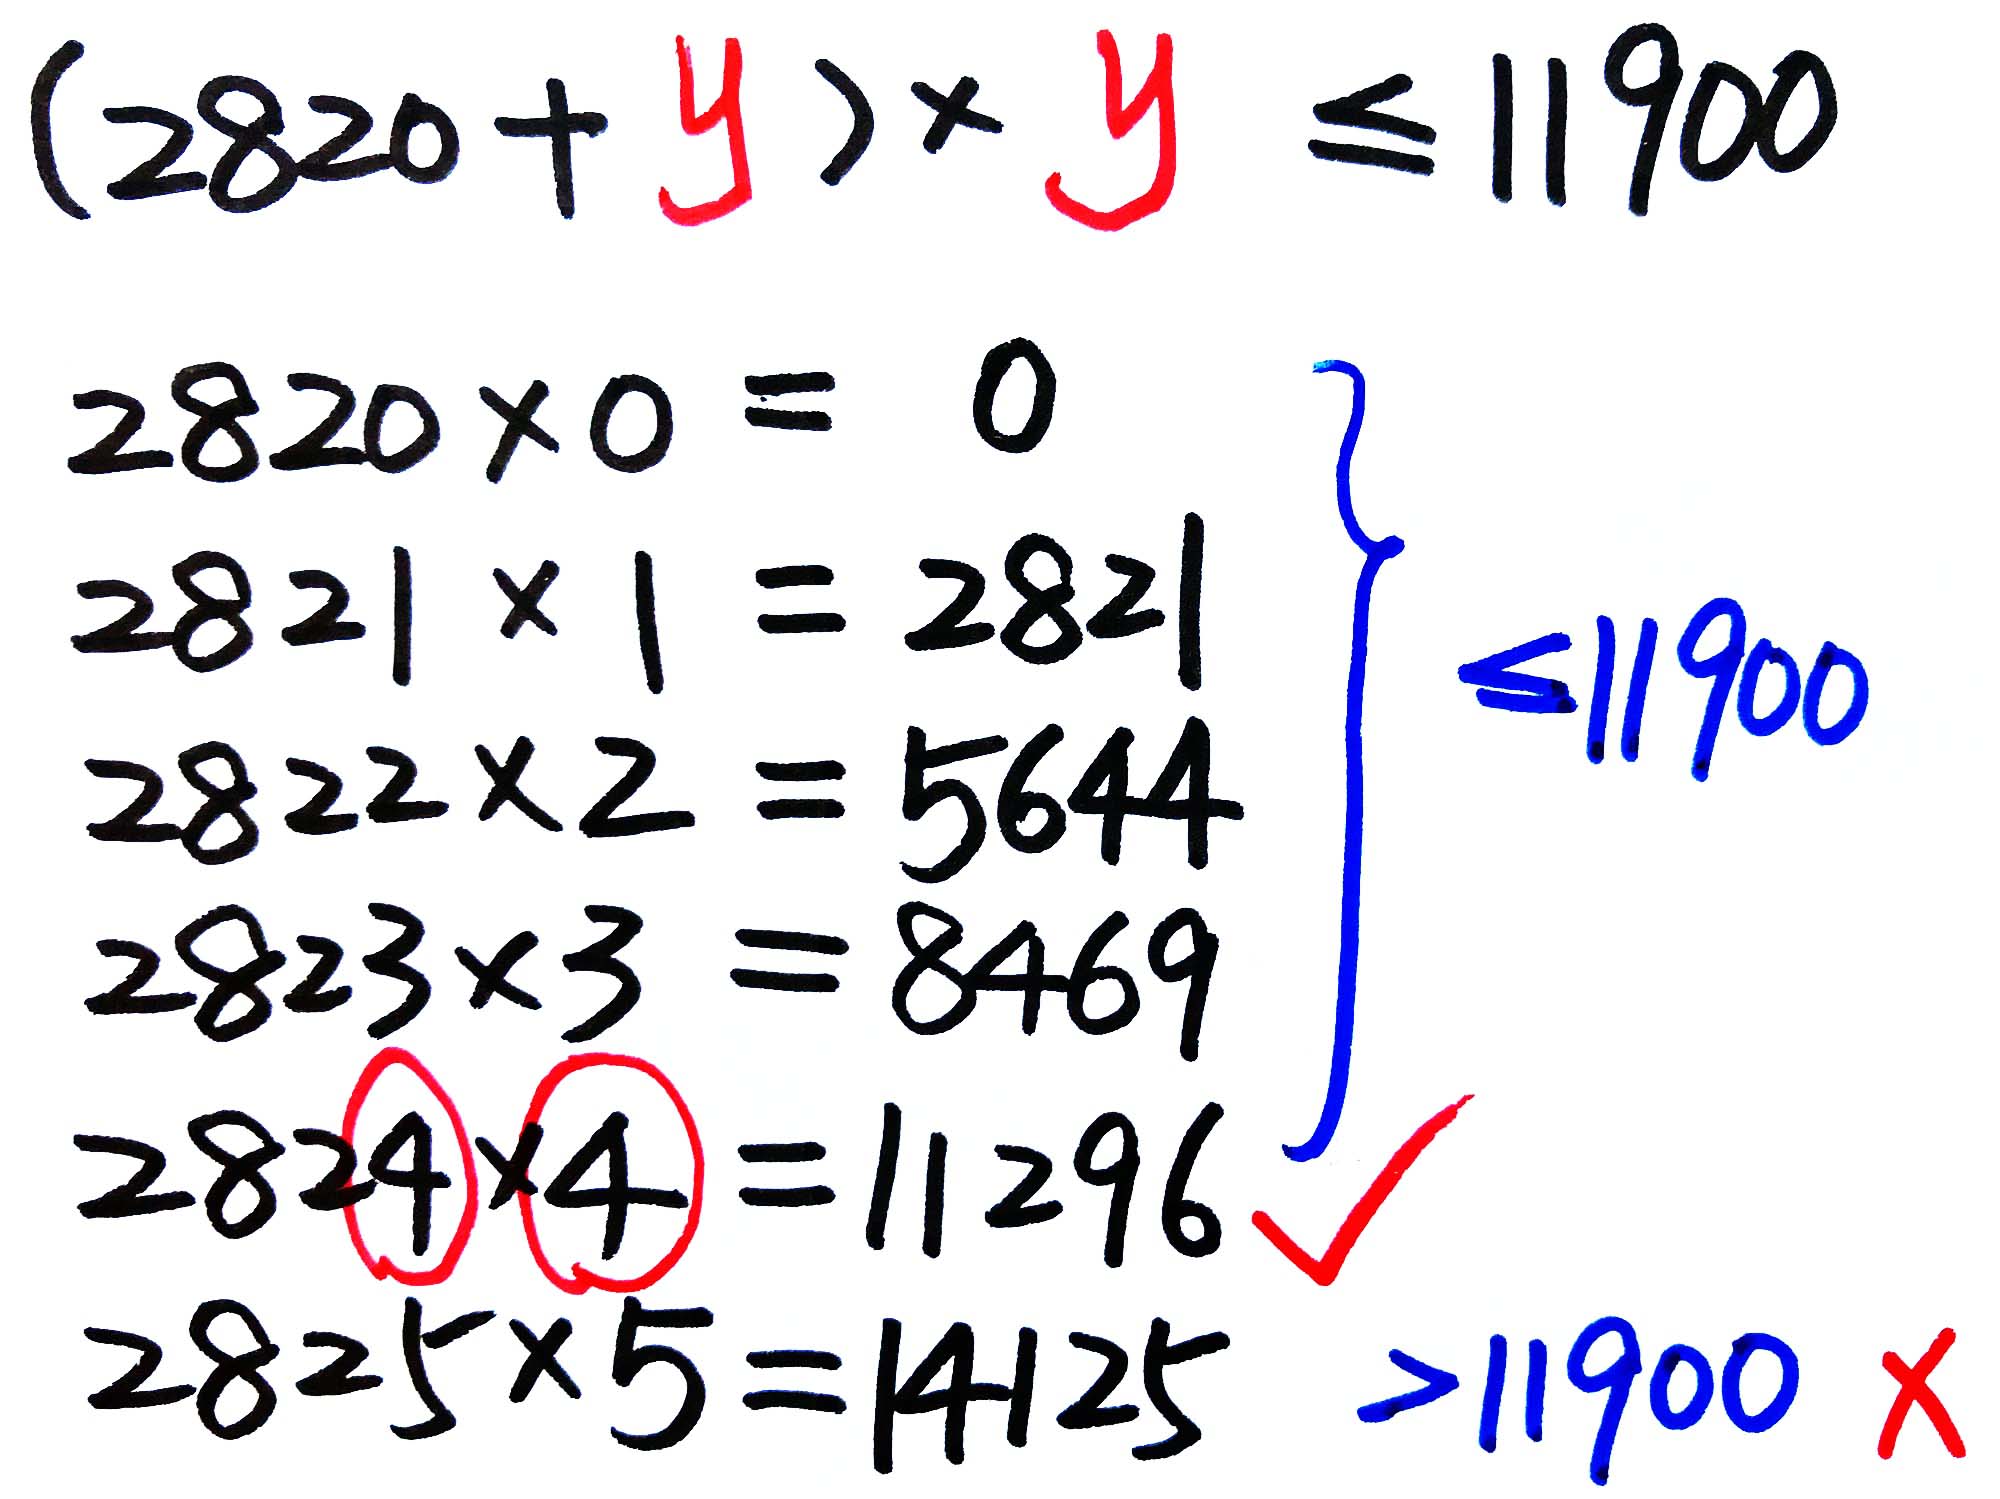 (2820+y)×y ≤11900
2820×0=0
2821×1=2821
2822×2=5644
2823×3=8469
≤11900
2824×4=11296 ✓
2825×5=14125 >11900 ×